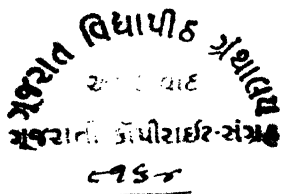 ગૂજરાત વિદ્યાપીઠ ગ્રંથાલય
ગૂજરાતી કૉપીરાઈટ-સંગ્રહ